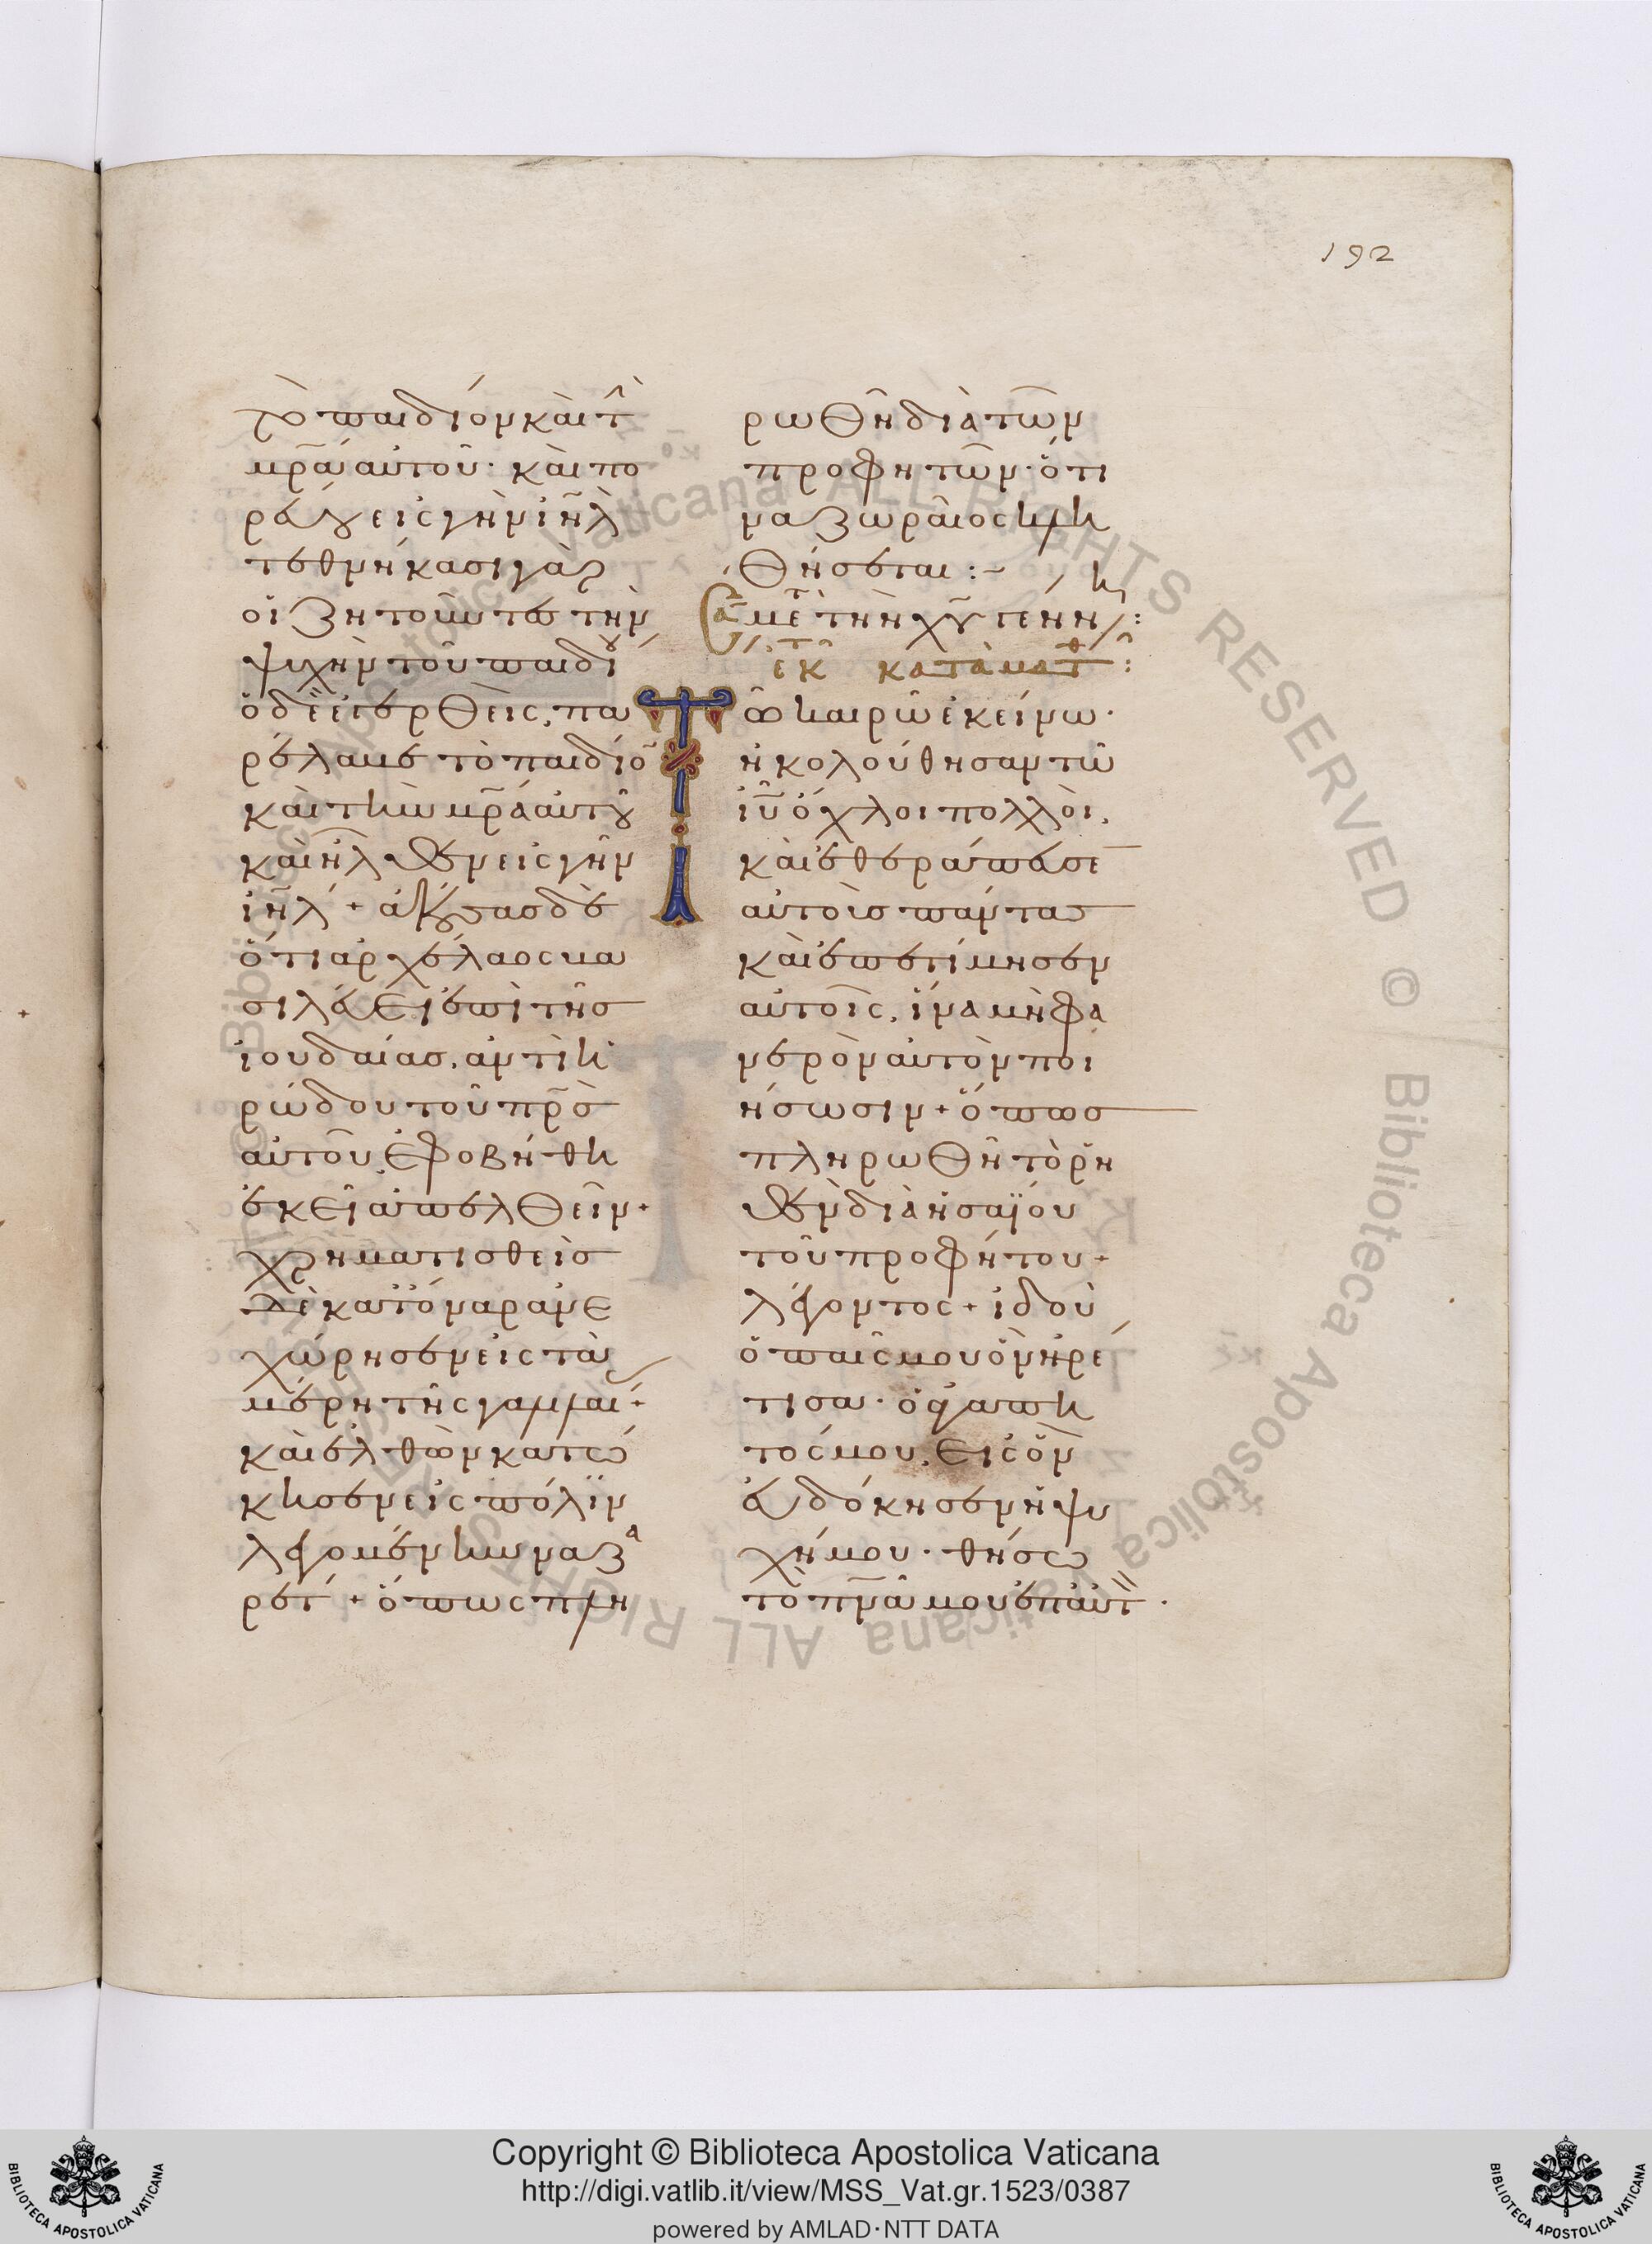 192
τὸ παιδίον καὶ τ̂
μ̅ρ̅α αὐτοῦ· καὶ πο
ρεύου εἰς γῆν ἰη̅λ̅
τεθνήκασι γὰρ
οἱ ζητοῦντες τὴν
ψυχὴν τοῦ παιδί
ὁ δὲ ἐγερθεὶς, πα
ρέλαβε τὸ παιδίο̅
καὶ τὴν μ̅ρ̅α αὐτοῦ
καὶ ἦλθεν εἰς γῆν
ἰη̅λ̅ + ἀκούσας δὲ
ὅτι ἀρχέλαος βα
σιλεύει ἐπὶ τῆς
ἰουδαίας, ἀντὶ ἡ
ρώδου τοῦ π̅ρ̅ς
αὐτοῦ, ἐφοβήθη
ἐκεῖ ἀπελθεῖν·
χρηματισθεὶς
δὲ κατ' ὄναρ ἀνε
χώρησεν εἰς τὰ
μέρη τῆς γαλιλαί +
καὶ ἐλθὼν κατώ
κησεν εἰς πόλιν
λεγομένην ναζα
ρέτ + ὅπως πλη
ρωθῇ διὰ τῶν
προφητῶν· ὅτι
ναζωραῖος κλη
θήσεται :-
Σα μετ τὴν χ̅υ̅ γέννη :
ἐκ κατὰ ματθ :
Τῶ καιρῶ ἐκείνω·
ἠκολούθησαν τῶ
ἰ̅υ̅ ὄχλοι πολλοὶ,
καὶ ἐθεράπευσε̅
αὐτοὺς πάντας
καὶ ἐπετίμησεν
αὐτοῖς, ἵνα μὴ φα
νερὸν αὐτὸν ποι
ήσωσιν + ὅπως
πληρωθῇ τὸ ῥη
θὲν διὰ ἠσαΐου
τοῦ προφήτου +
λέγοντος + ἰδοὺ
ὁ παῖς μου ὃν ἡρέ
τισα· ὁ ἀγαπη
τός μου, εἰς ὃν
εὐδόκησεν ἡ ψυ
χή μου· θήσω
τὸ π̅ν̅α̅ μου ἐπ' αὐτ ·
Copyright © Biblioteca Apostolica Vaticana
http://digi.vatlib.it/view/MSS_Vat.gr.1523/0387
powered by AMLAD·NTT DATA
BIBLIOTECA APOSTOLICA VATICANA
BIBLIOTECA APOSTOLICA VATICANA
Biblioteca Apostolica Vaticana ALL RIGHTS RESERVED ©